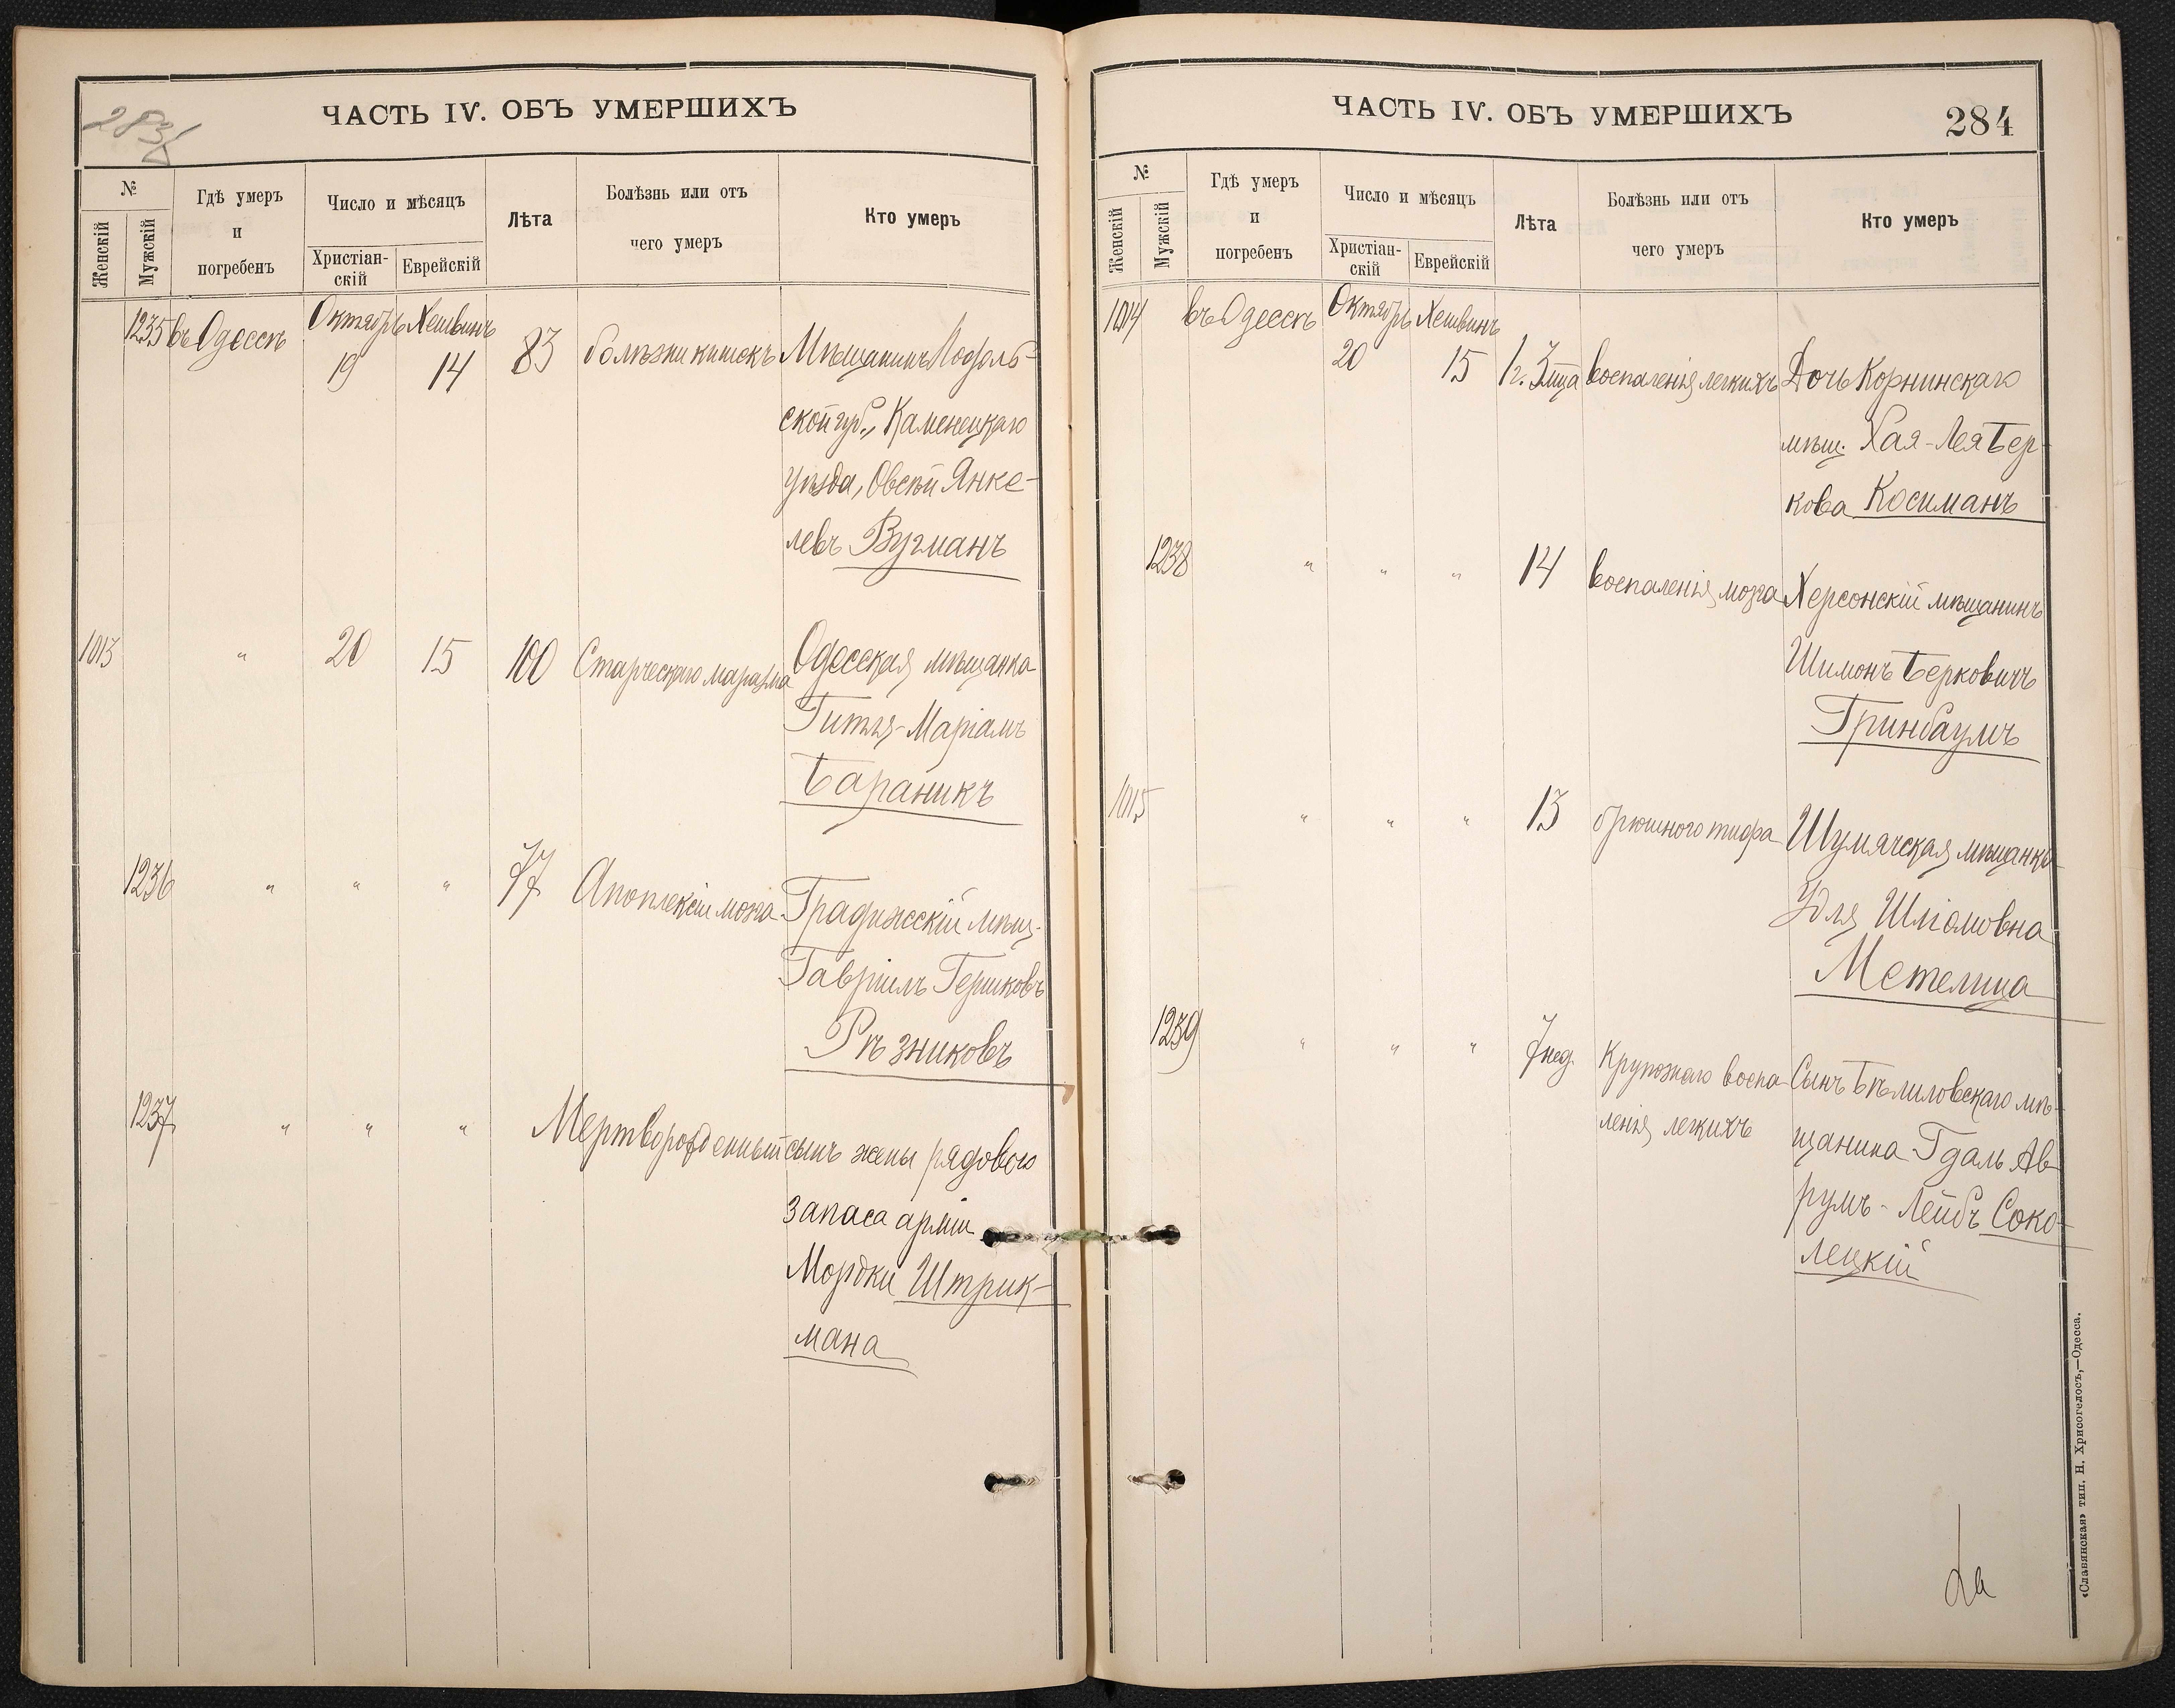 283
ЧАСТЬ IV. ОБЪ УМЕРШИХЪ
№
Женскій
Мужскій
Гдѣ умеръ
и
погребенъ
Число и мѣсяцъ
Христіан-
скій
Еврейскій
Лѣта
Болѣзнь или отъ
чего умеръ
Кто умеръ
1235 въ Одессѣ Октябрь Хешвинъ
19 14 83 болѣзни кишекъ Мѣщанинъ Подоль-
ской губ., Каменецкаго
уѣзда, Овсѣй Янке-
левъ Вугманъ
1013 " 20 15 100 Старческаго маразма Одесская мѣщанка
Гитля-Маріамъ
Бараникъ
1236 " " " 77 Апоплексіи мозга Градижскій мѣщ.
Гавріилъ Гершковъ
Рѣзниковъ
1237 " " " Мертворожденный сынъ жены рядового
запаса арміи
Мордки Штрик-
мана
ЧАСТЬ IV. ОБЪ УМЕРШИХЪ
284
№
Женскій
Мужскій
Гдѣ умеръ
и
погребенъ
Число и мѣсяцъ
Христіан-
скій
Еврейскій
Лѣта
Болѣзнь или отъ
чего умеръ
Кто умеръ
1014 въ Одессѣ Октябрь Хешвинъ
20 15 1г. 3мца воспаленія легкихъ Дочь Корнинскаго
мѣщ. Хая-Лея Бер-
кова Косиманъ
1238 " " " 14 воспаленія мозга Херсонскій мѣщанинъ
Шимонъ Берковичъ
Гринбаумъ
1015 " " " 13 брюшного тифа Шумячская мѣщанка
Удля Шліомовна
Метелица
1239 " " " 7 нед. Крупознаго воспа- Сынъ Бѣлиловскаго мѣ-
ленія легкихъ щанина Гдаль Ав-
румъ-Лейбъ Соко-
лецкій
«Славянская» тип. Н. Хрисогелосъ,—Одесса.